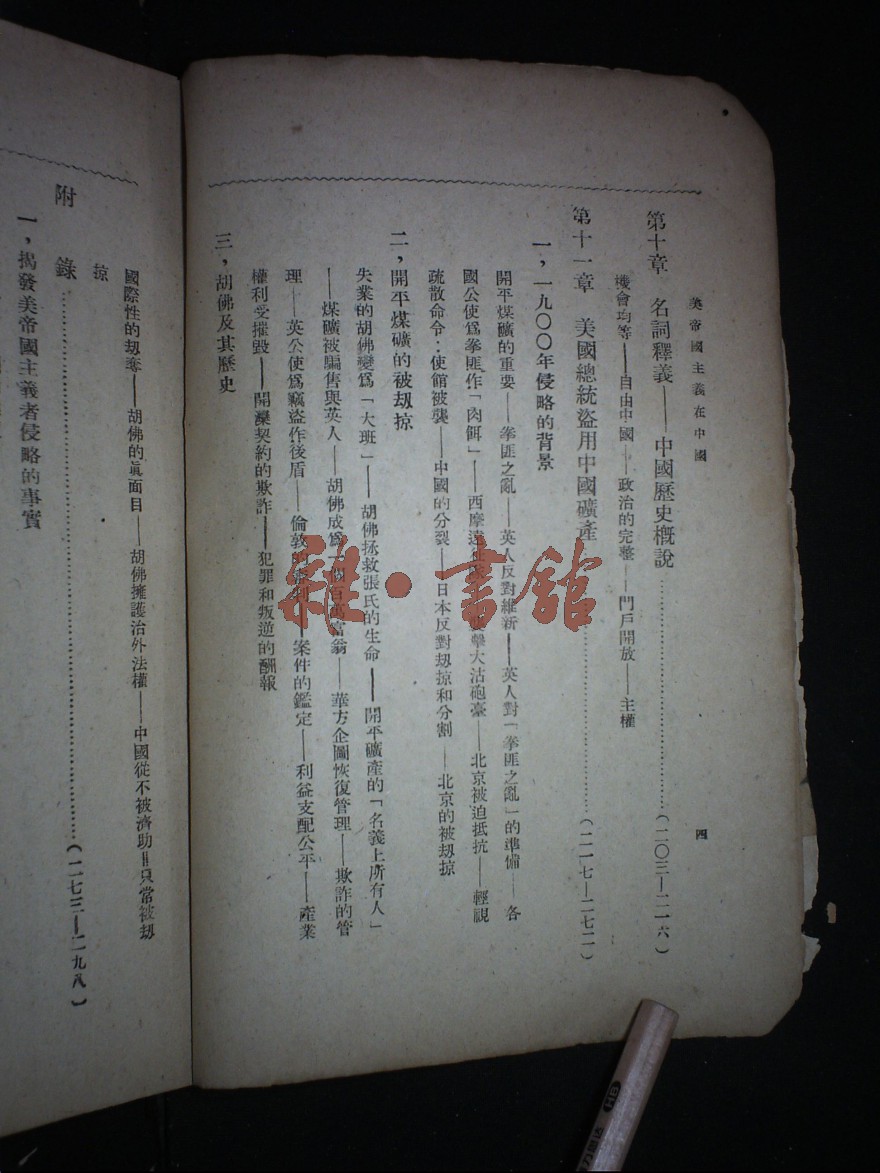 美帝國主義在中國
四
第十章 名詞釋義——中國歷史概說……(二〇三—二一六)
機會均等——自由中國——政治的完整——門戶開放——主權
第十一章 美國總統盜用中國礦產……(二一七—二七二)
一，一九〇〇年侵略的背景
開平煤礦的重要——拳匪之亂——英人反對維新——英人對「拳匪之亂」的準備——各
國公使爲拳匪作「肉餌」——西摩遠征 擊大沽砲臺——北京被迫抵抗——輕視
疏散命令：使館被襲——中國的分裂——日本反對刼掠和分割——北京的被刼掠
二，開平煤礦的被刼掠
失業的胡佛變爲「大班」——胡佛拯救張氏的生命——開平礦產的「名義上所有人」
——煤礦被騙售與英人——胡佛成爲一個百萬富翁——華方企圖恢復管理——欺詐的管
理——英公使爲竊盜作後盾——倫敦的審判——案件的鑑定——利益支配公平——產業
權利受摧毀——開灤契約的欺詐——犯罪和叛逆的酬報
三，胡佛及其歷史
國際性的刼奪——胡佛的眞面目——胡佛擁護治外法權——中國從不被濟助＝只常被刼
掠
附 錄……(二七三—二九八)
一，揭發美帝國主義者侵略的事實
雜·書館
HB